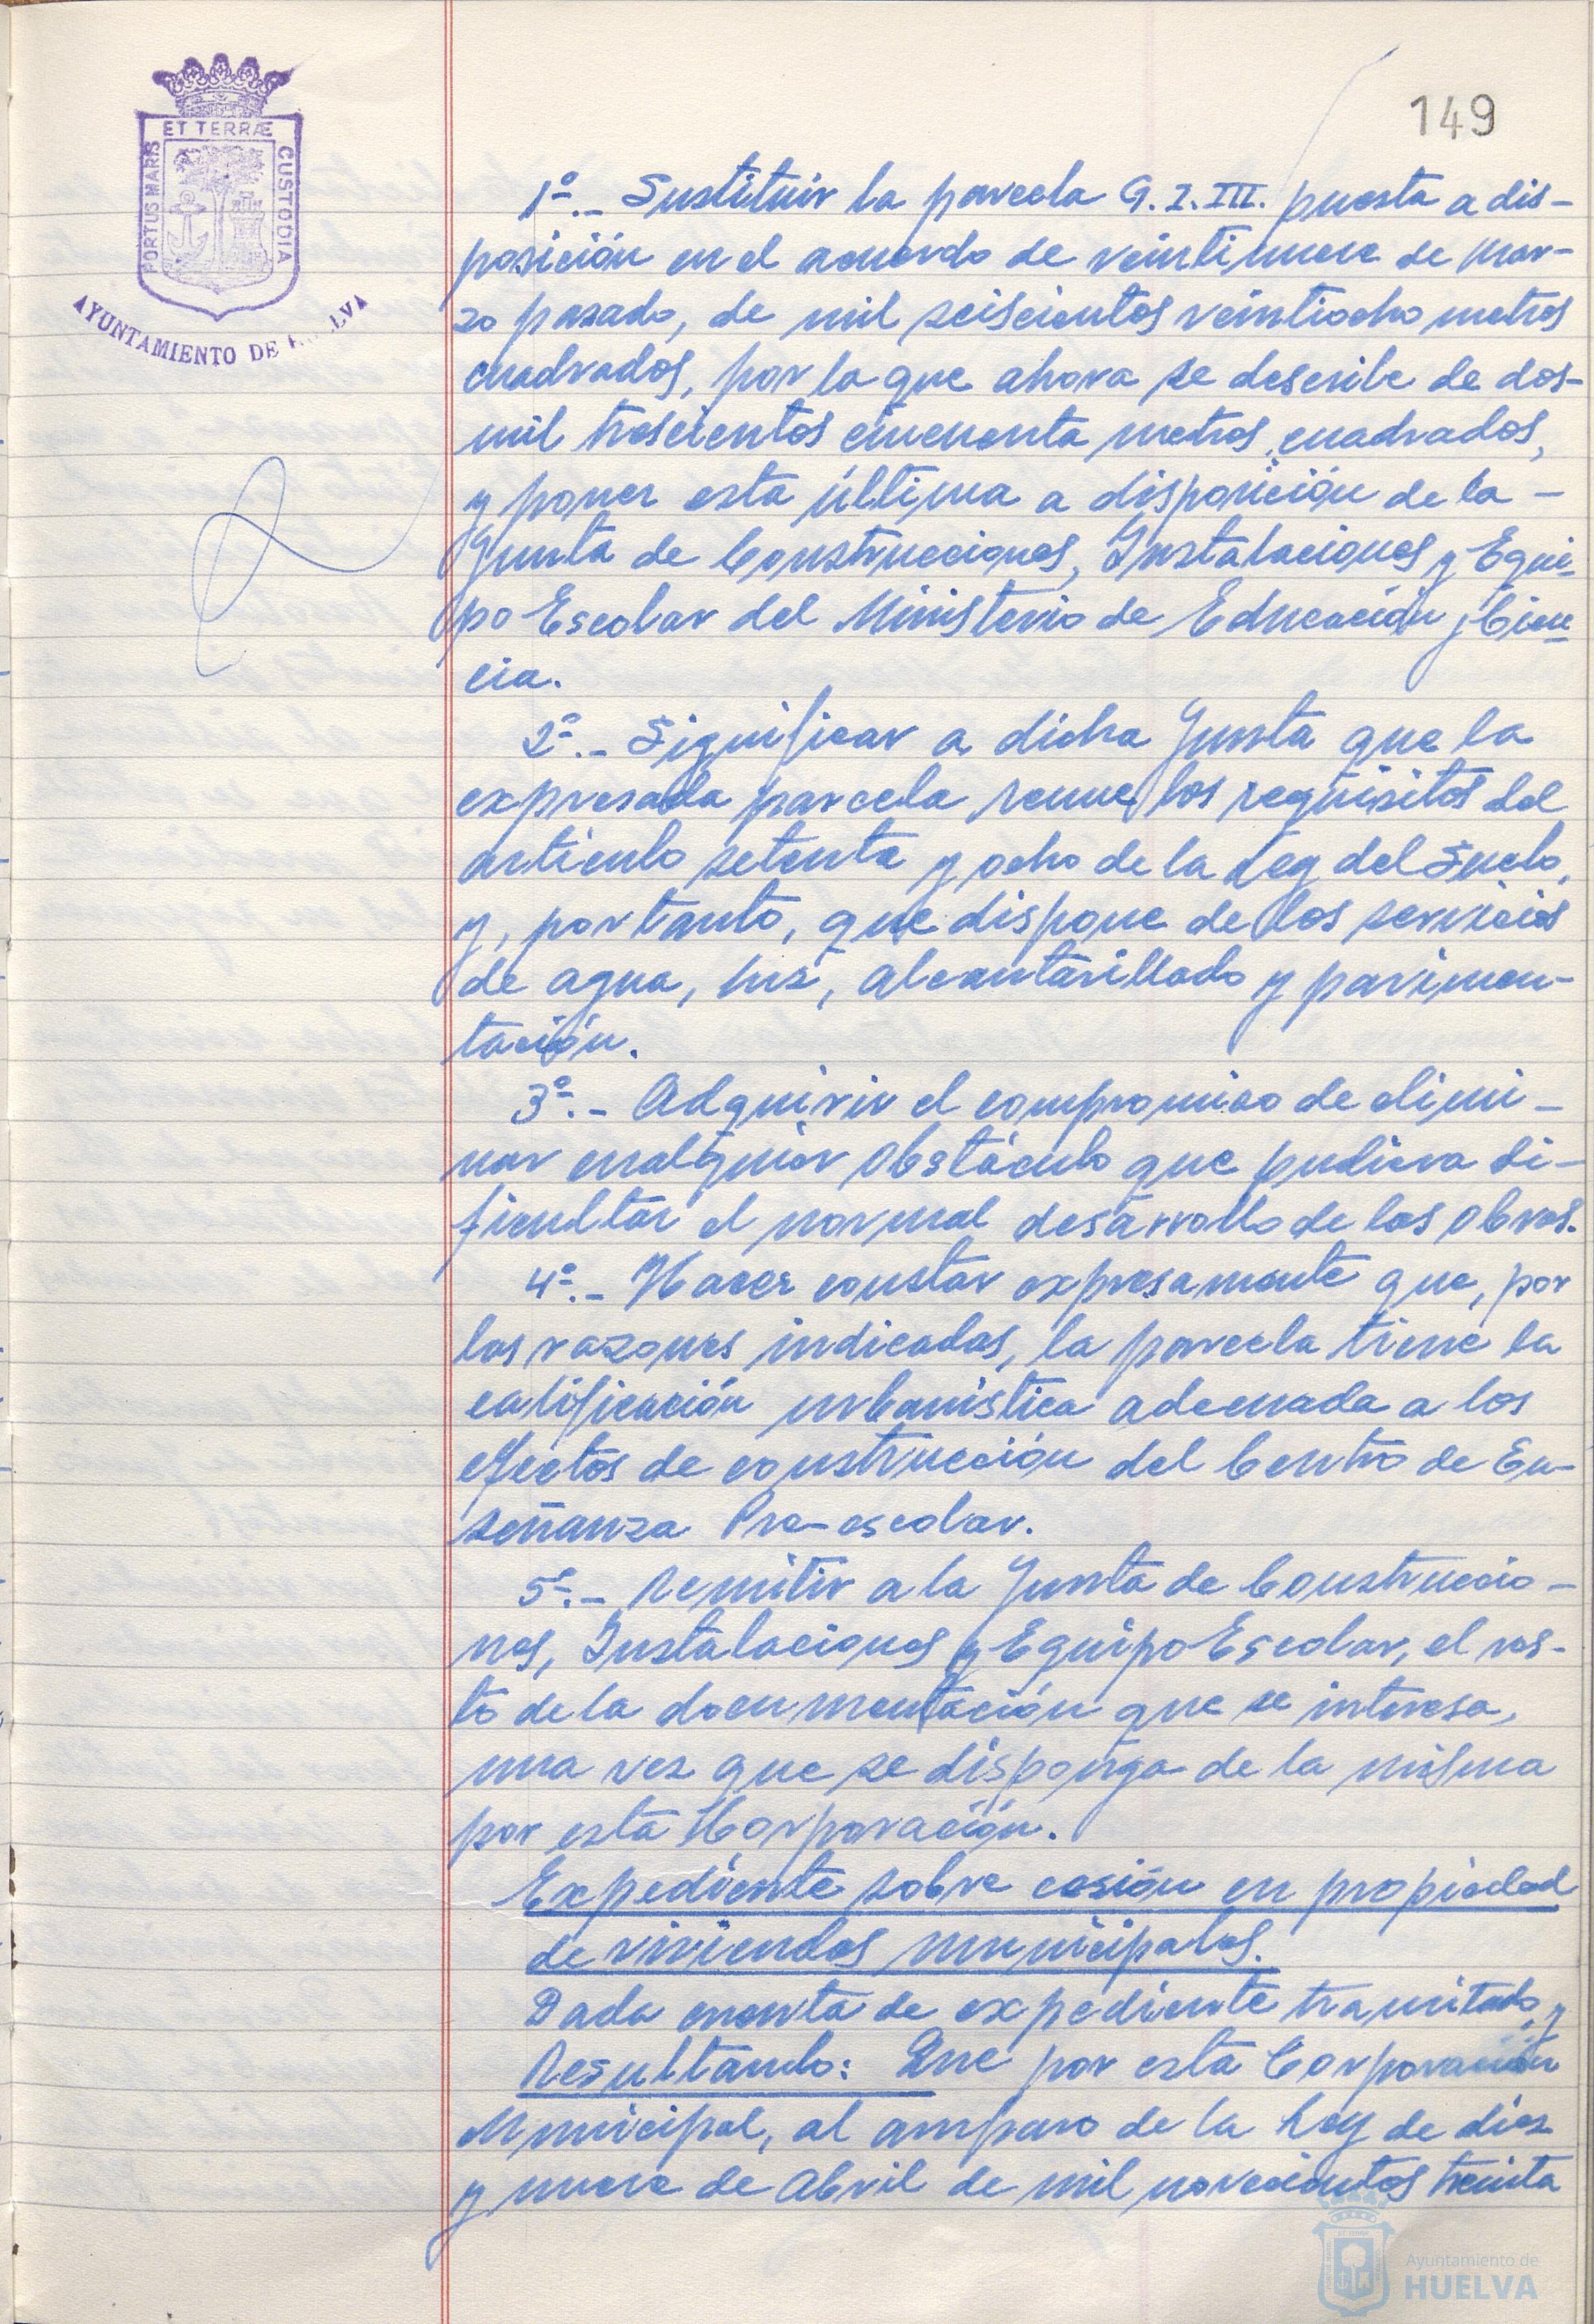 149
ET TERRÆ
PORTUS MARIS
CUSTODIA
AYUNTAMIENTO DE H LVA
1º.- Sustituir la parcela G.I.III. puesta a dis-
posición en el acuerdo de veintinueve de Mar-
zo pasado, de mil seiscientos veintiocho metros
cuadrados, por la que ahora se describe de dos-
mil trescientos cincuenta metros cuadrados,
y poner esta última a disposición de la -
Junta de Construcciones, Instalaciones y Equi-
po Escolar del Ministerio de Educación y Cien-
cia.
2º.- Significar a dicha Junta que la
expresada parcela reune los requisitos del
artículo setenta y ocho de la Ley del Suelo,
y, por tanto, que dispone de los servicios
de agua, luz, alcantarillado y pavimen-
tación.
3º.- Adquirir el compromiso de elimi-
nar cualquier obstáculo que pudiera di-
ficultar el normal desarrollo de las obras.
4º.- Hacer constar expresamente que, por
las razones indicadas, la parcela tiene la
calificación urbanística adecuada a los
efectos de construcción del Centro de En-
señanza Pre-escolar.
5º.- Remitir a la Junta de Construccio-
nes, Instalaciones y Equipo Escolar, el res-
to de la documentación que se interesa,
una vez que se disponga de la misma
por esta Corporación.
Expediente sobre cesión en propiedad
de viviendas municipales.
Dada cuenta de expediente tramitado, y
Resultando: Que por esta Corporación
Municipal, al amparo de la Ley de diez
y nueve de Abril de mil novecientos treinta
Ayuntamiento de
HUELVA